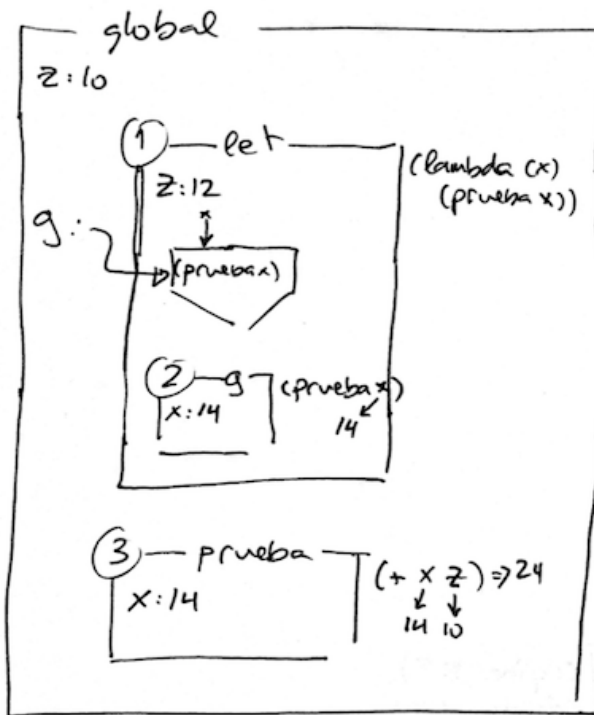 global
z:10
1 let
(lambda (x)
(prueba x))
z:12
g:
x
(prueba x)
2 g (prueba x)
x:14
14
3 prueba
(+ x z) => 24
x:14
14 10